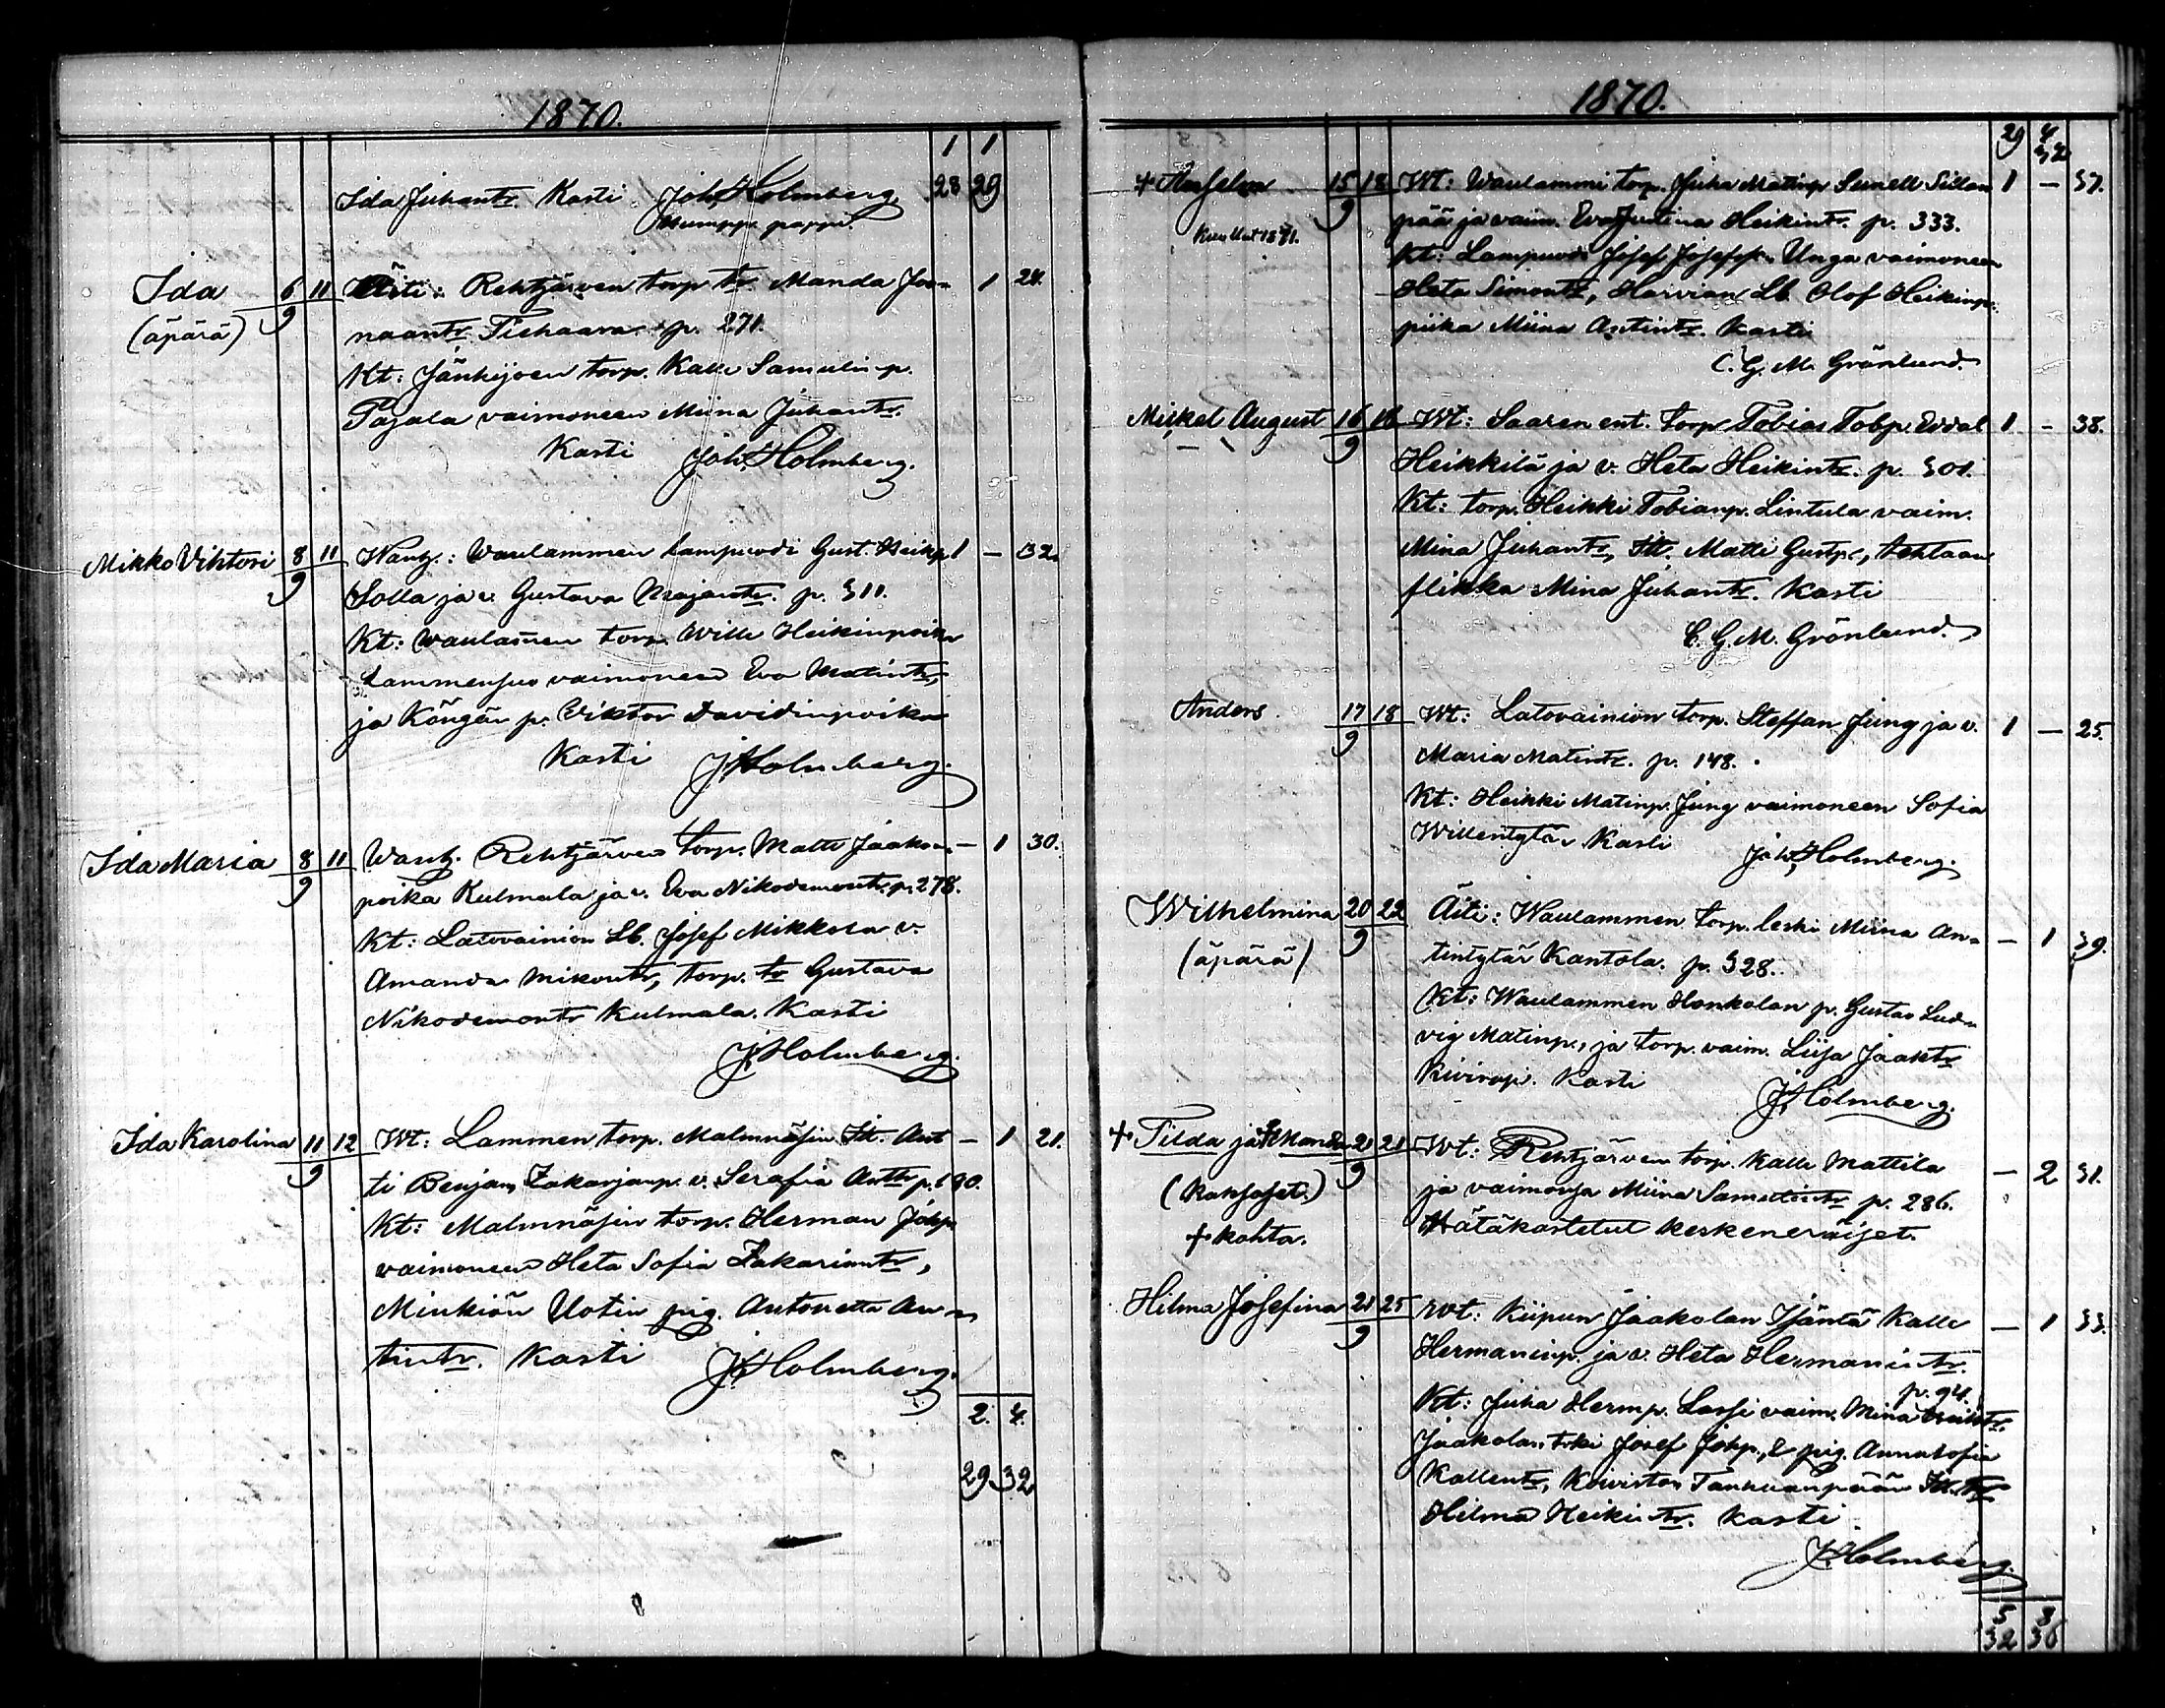 1870.
1 1
Ida Juhantr. Kasti Joh. Holmberg 28 29
pappi.
Ida 6 11 Äiti: Rehtjärven torp. tr. Manda Joo= 1 24.
(äpärä) 9 naantr. p. 271.
Kt: Jänhijoen torp. Kalle Samulinp.
Pajala vaimoneen Miina Juhantr.
Kasti Joh. Holmberg.
Mikko Vihtori 8 11 Wanh.: Waulammen lampuodi Gust. Heikp. 1 — 32.
9 Solla ja v. Gustava p. 311.
Kt: Waulamen torp. Wille Heikinpoika
vaimoneen Eva Matintr,
ja Köngän p. Viktor Davidinpoika
Kasti J Holmberg.
Ida Maria 8 11 Wanh. Rehtjärven torp. Matti Jaakon= — 1 30.
9 poika Kulmala ja v. Eva Nikodemontr. p. 278.
Kt: Latovainion Lb. Josef Mikkola v.
Amanda Mikontr, torp. tr Gustava
Nikodemontr Kulmala. Kasti
J Holmberg.
Ida Karolina 11 12 Wt: Lammen torp. Malmnäsin Itt. Ant — 1 21.
9 ti Benjam. Zakarjanp. v. Serafia Anttr p. 690.
Kt: Malmnäsin torp. Herman Johp.
vaimoneen Heta Sofia Zakariantr,
Minkiön Uotin pig. Antonetta An=
tintr. Kasti J Holmberg.
2. 4.
29 32
1870.
29 4
32
+ Anselm 15 18 Wt: Waulammi torp. Juha Matinp. Sunell Sillan 1 — 37.
9 pää ja vaim. Eva Justina Heikintr. p. 333.
Kuollut 1871.
Kt: Lampuodi Josef Josefp. Unga vaimoneen
Heta Simontr, Harvian Lb. Olof Heikinp.
piika Miina Antintr. Kasti
C. G. M. Grönlund.
Mickel August 16 18 Wt: Saaren ent. torp. Tobias Tobp. 1 - 38.
9 Heikkilä ja v. Heta Heikintr. p. 301.
Kt: torp. Heikki Tobianp. Lintula vaim.
Mina Juhantr, Itt. Matti Gustp., tehtaan
flikka Mina Juhantr. Kasti
C. G. M. Grönlund.
Anders 17 18 Wt: Latovainion torp. Steffan Jung ja v. 1 — 25.
9 Maria Matintr. p. 148.
Kt: Heikki Matinp. Jung vaimoneen Sofia
Willentytär Kasti Joh. Holmberg.
Wilhelmina 20 22 Äiti: Waulammen torp. leski Miina An= — 1 39.
(äpärä) 9 tintytär Kantola. p. 328.
Kt: Waulammen Honkolan p. Gustav Lud=
vig Matinp., ja torp. vaim. Liisa Jaaktr
Kasti J Holmberg.
+ Tilda ja + Manda 21 21 Wt: Rehtjärven torp. Kalle Mattila — 2 31.
(Kaksoset.) 9 ja vaimonsa Miina Samulintr p. 286.
+ kohta. Hätäkastetut keskeneräiset.
Hilma Josefina 21 25 Wt: Kiipun Jaakolan Isäntä Kalle — 1 33.
9 Hermaninp. ja v. Heta Hermanintr.
p. 94.
Kt: Juha Hermp. Lassi vaim. Mina
Jaakolan Josef Johp., & pig. Anna Sofia
Kallentr, Koiviston Itt. tr
Hilma Heikintr. Kasti
J Holmberg.
5 8
32 36